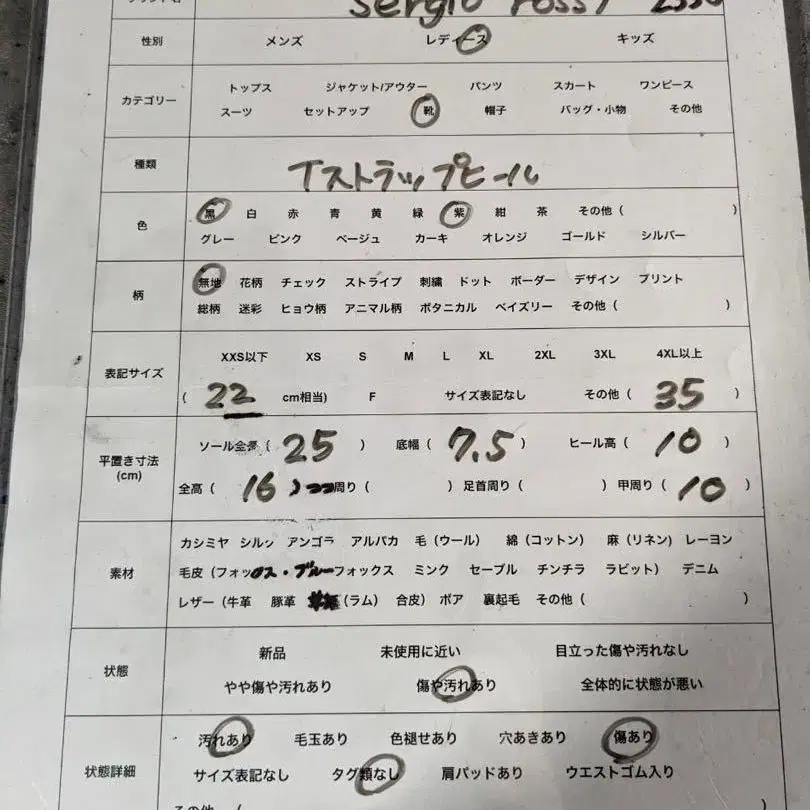 sergio rossi
性別 メンズ レディース キッズ
カテゴリー トップス ジャケット/アウター パンツ スカート ワンピース
スーツ セットアップ 靴 帽子 バッグ・小物 その他
種類 Tストラップヒール
色 黒 白 赤 青 黄 緑 紫 紺 茶 その他 ( )
グレー ピンク ベージュ カーキ オレンジ ゴールド シルバー
柄 無地 花柄 チェック ストライプ 刺繍 ドット ボーダー デザイン プリント
総柄 迷彩 ヒョウ柄 アニマル柄 ボタニカル ペイズリー その他 ( )
表記サイズ XXS以下 XS S M L XL 2XL 3XL 4XL以上
( 22 cm相当) F サイズ表記なし その他 ( 35 )
平置き寸法 (cm) ソール全長 ( 25 ) 底幅 ( 7.5 ) ヒール高 ( 10 )
全高 ( 16 ) 周り ( ) 足首周り ( ) 甲周り ( 10 )
素材 カシミヤ シルク アンゴラ アルパカ 毛 (ウール) 綿 (コットン) 麻 (リネン) レーヨン
毛皮 (フォックス・ブルーフォックス ミンク セーブル チンチラ ラビット) デニム
レザー (牛革 豚革 (ラム) 合皮) ボア 裏起毛 その他 ( )
状態 新品 未使用に近い 目立った傷や汚れなし
やや傷や汚れあり 傷や汚れあり 全体的に状態が悪い
状態詳細 汚れあり 毛玉あり 色褪せあり 穴あきあり 傷あり
サイズ表記なし タグ類なし 肩パッドあり ウエストゴム入り
その他 (